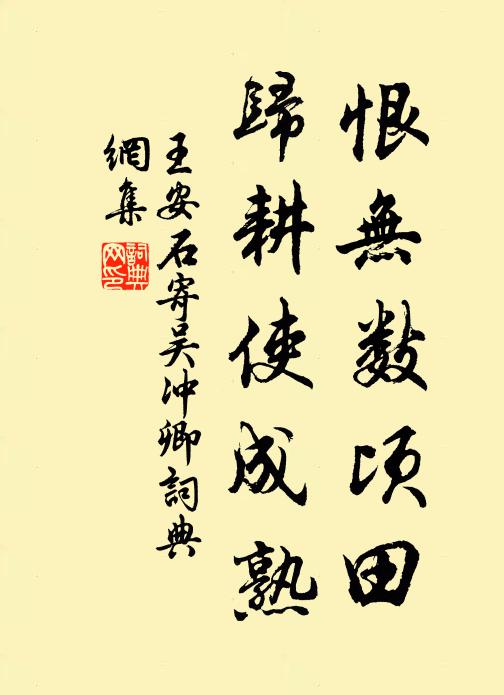 恨無數頃田
歸耕使成熟
王安石寄吴冲卿詞典
網集
詞典网印